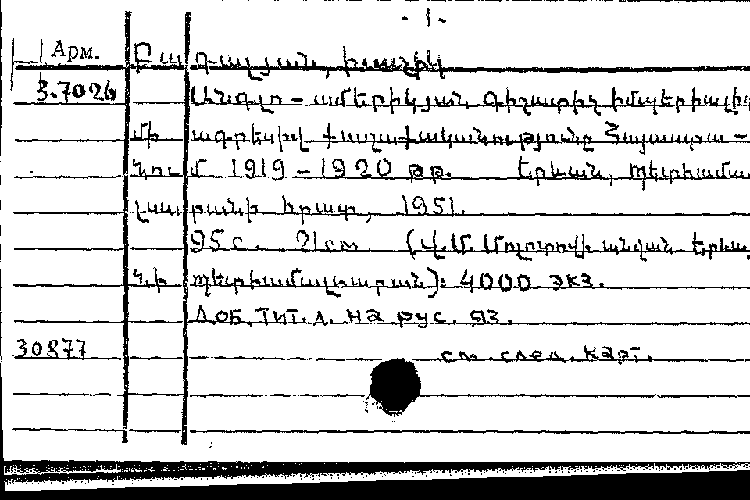 - 1 -
Арм. Բադալյան, Խաչիկ
3.7026 Անգլո - ամերիկյան գիշատիչ իմպերիալիզ
մի ագրեսիվ քաղաքականությունը Հայաստա -
նում 1919 - 1920 թթ. Երևան, պետհամա
լսարանի հրատ, 1951.
95 с. 21 см (Վ. Մ. Մոլոտովի անվան Երևա
նի պետհամալսարան): 4000 экз.
Доб. тит. л. на рус. яз.
30877 см. след. карт.